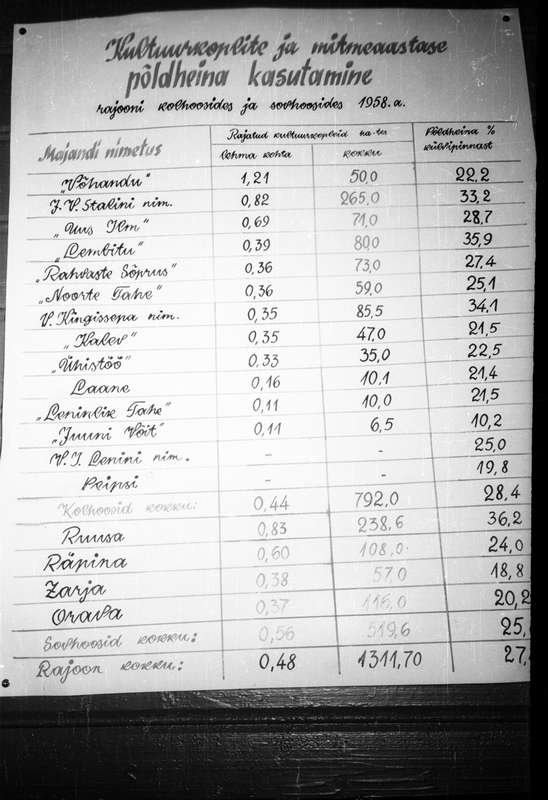 Kultuurkoplite ja mitmeaastase
põldheina kasutamine
rajooni kolhoosides ja sovhoosides 1958. a.
Majandi nimetus Rajatud kultuurkopleid ha-tes Põldheina %
lehma kohta kokku külvipinnast
"Võhandu" 1,21 50,0 22,2
J. V. Stalini nim. 0,82 265,0 33,2
"Uus Ilm" 0,69 71,0 28,7
"Lembitu" 0,39 80,0 35,9
"Rahvaste Sõprus" 0,36 73,0 27,4
"Noorte Tahe" 0,36 59,0 25,1
V. Kingissepa nim. 0,35 85,5 34,1
"Kalev" 0,35 47,0 21,5
"Ühistöö" 0,33 35,0 22,5
Laane 0,16 10,1 21,4
"Leninlik Tahe" 0,11 10,0 21,5
"Juuni Võit" 0,11 6,5 10,2
V. I. Lenini nim. - - 25,0
Peipsi - - 19,8
Kolhoosid kokku: 0,44 792,0 28,4
Ruusa 0,83 238,6 36,2
Räpina 0,60 108,0 24,0
Zarja 0,38 57,0 18,8
Orava 0,37 116,0 20,2
Sovhoosid kokku: 0,56 519,6 25,
Rajoon kokku: 0,48 1311,70 27,